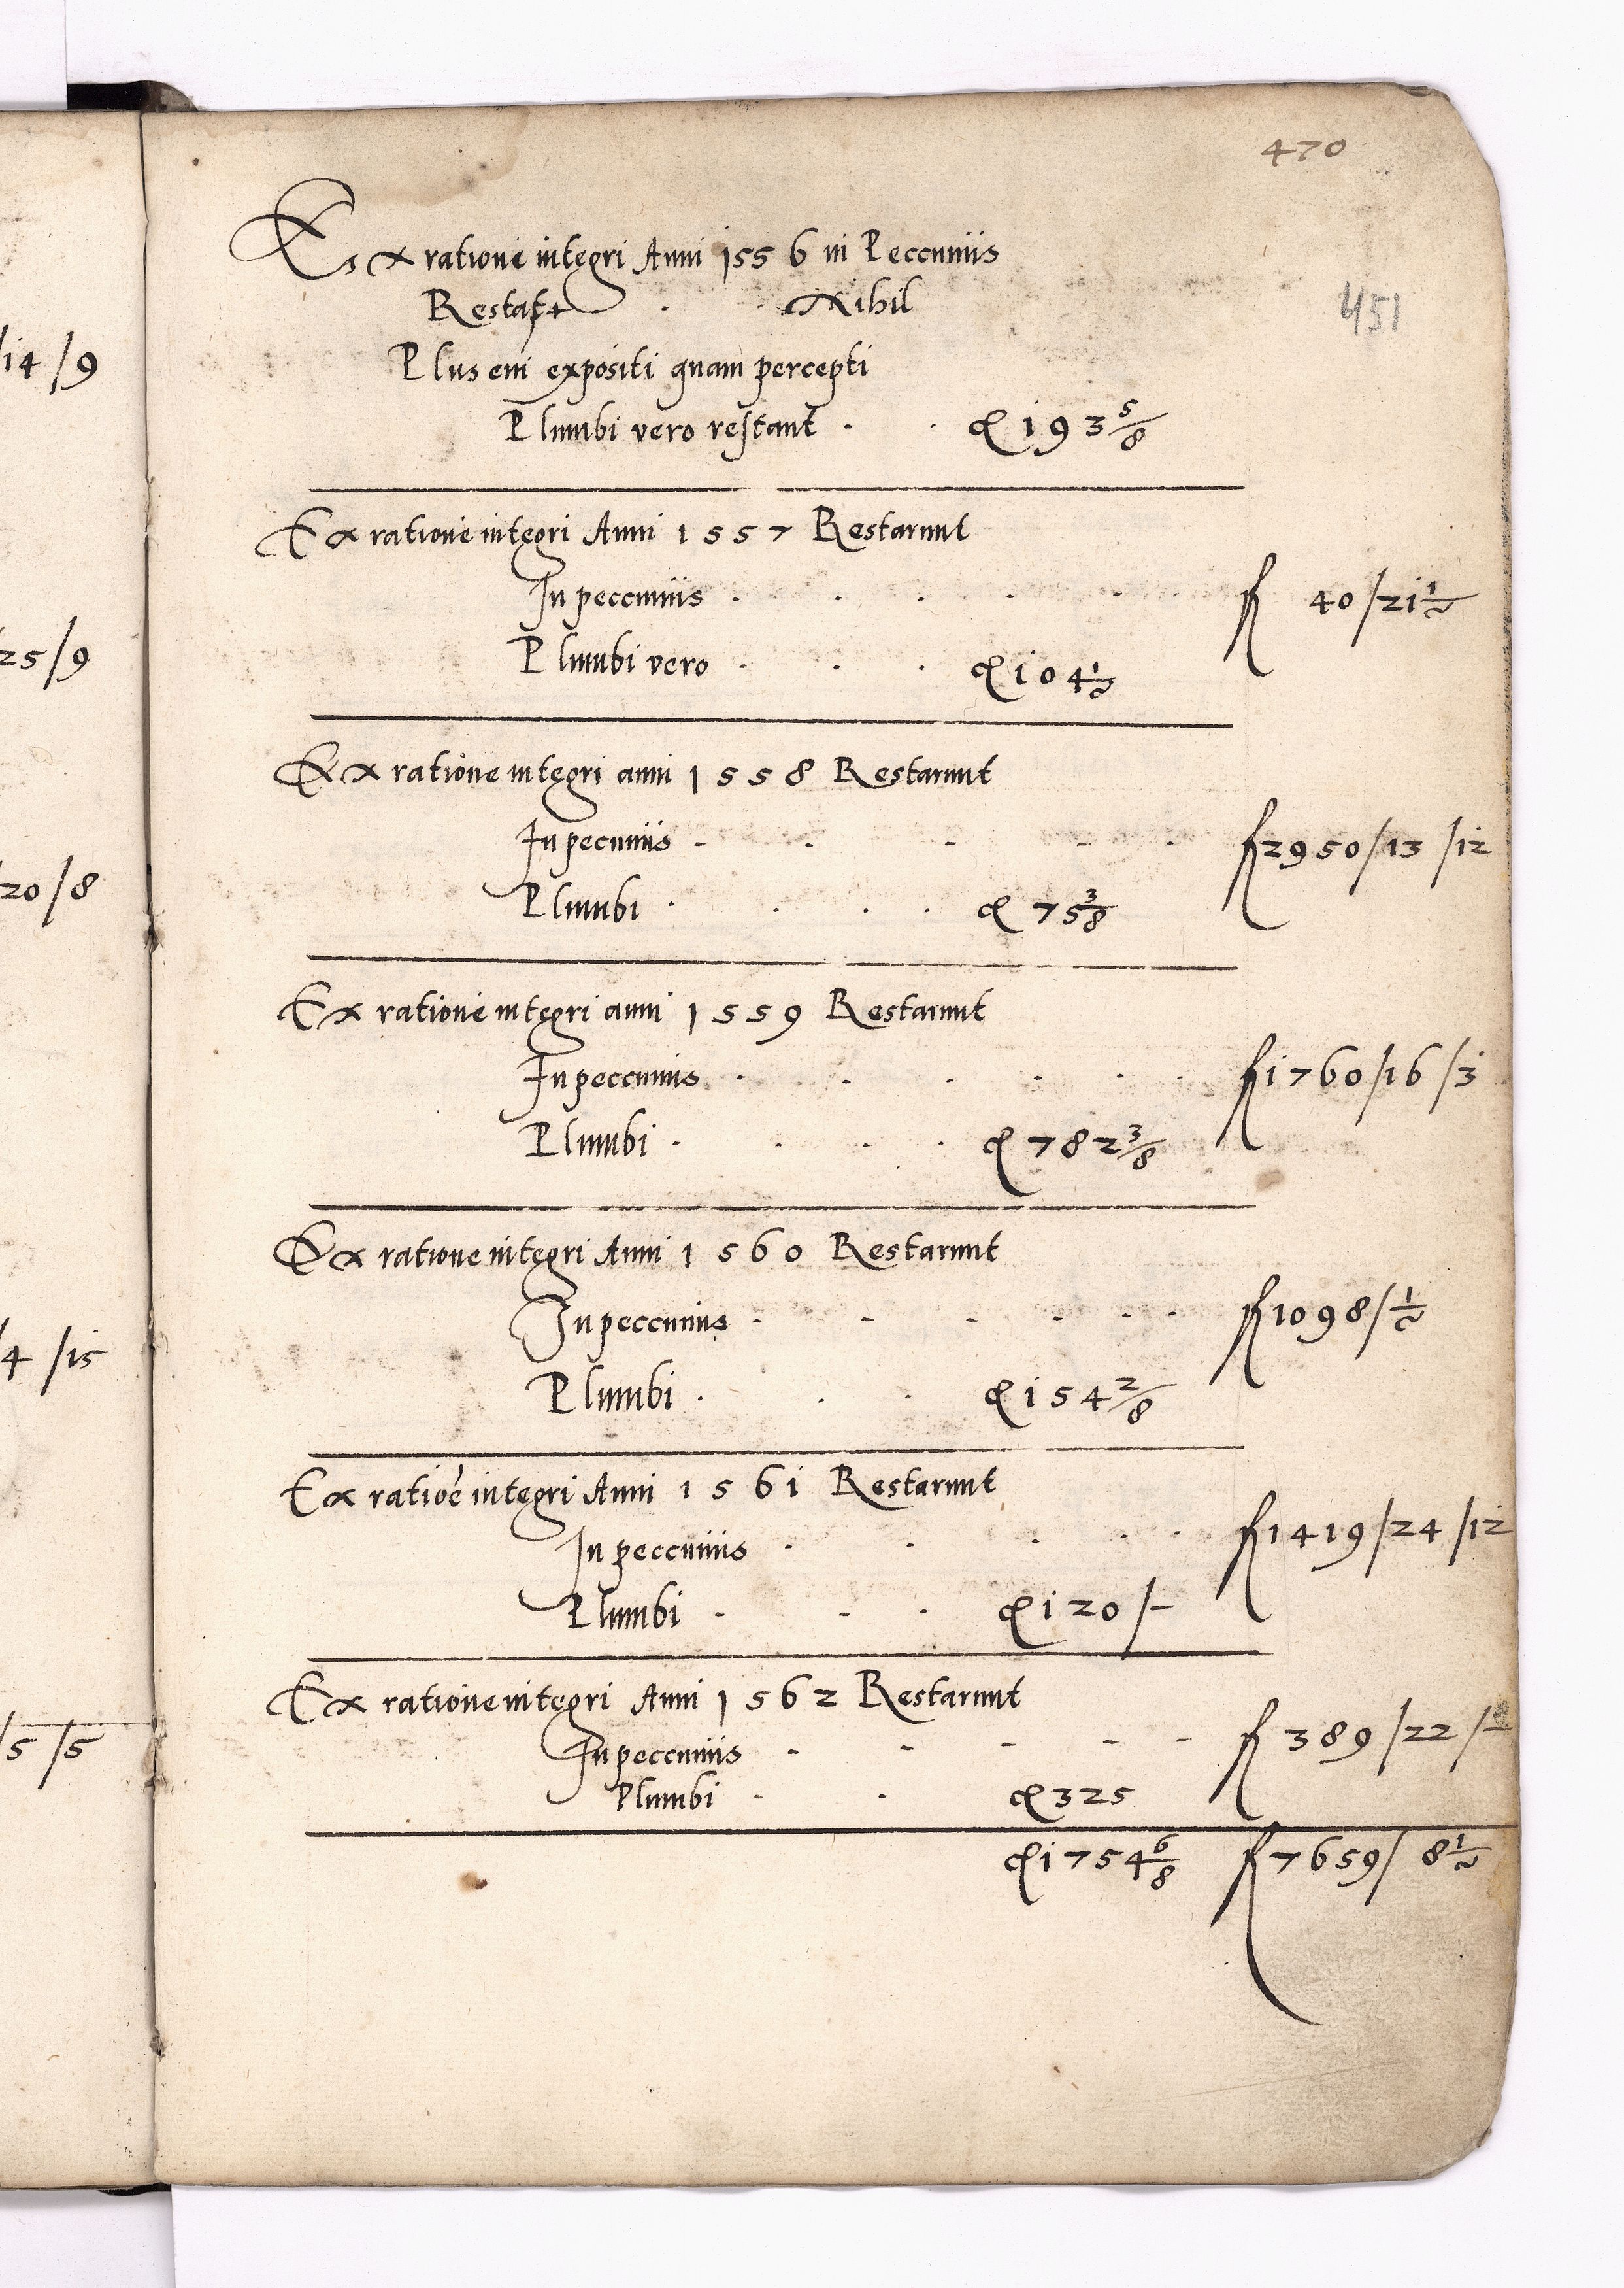 /14 /9
25/9
20/8
/4 /15
/5 /5
470
451
Ex ratione integri Anni 1556 in Peccuniis
Restat Nihil
Plus eni expositi quam percepti
Plumbi vero restant . . 193 5/8
Ex ratione integri Anni 1557 Restarunt
In peccuniis . . . . . . fl 40/21 1/2
Plumbi vero . . . 104 1/2
Ex ratione integri anni 1558 Restarunt
In pecuniis - . - - . fl 2950/13/12
Plumbi . . . . 75 3/8
Ex ratione integri anni 1559 Restarunt
In peccuniis . . . . . . fl 1760/16/3
Plumbi . . . . 782 3/8
Ex ratione integri Anni 1560 Restarunt
In peccuniis . - . . . . fl 1098/ 1/2
Plumbi . . . 154 2/8
Ex ratioe integri Anni 1561 Restarunt
In peccuniis . . . . . fl 1419/24/12
Plumbi . . . 120/-
Ex ratione integri Anni 1562 Restarunt
In peccuniis - - - - - fl 389/22/-
Plumbi . . 325
1754 6/8 fl 7659/ 8 1/2